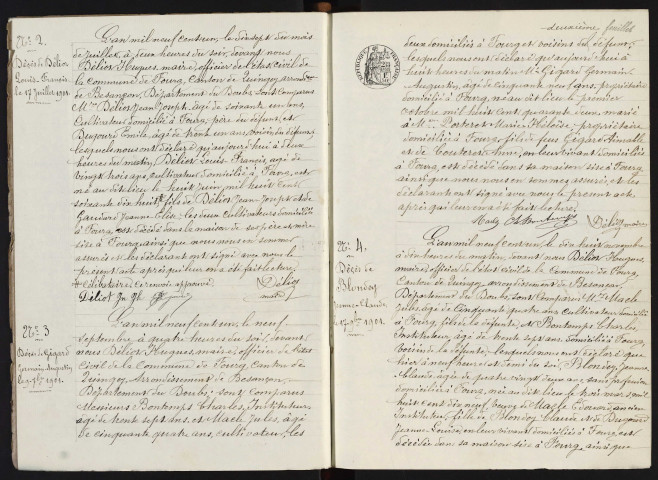 N° 2.
Décès de Bélior
Louis Francis
Le 17 Juillet 1901.
L'an mil neuf cent un, le dix sept du mois
de juillet, à deux heures du soir, devant nous
Bélior Hugues, maire, officier de l'état civil de
la Commune de Fourg, Canton de Quingey, arrondt
de Besançon, Département du Doubs, sont comparus
M.rs Bélior Jean Joseph, âgé de soixante un ans,
Cultivateur domicilié à Fourg, père du défunt, et
Emile, âgé de trente un ans, voisin du défunt,
lesquels nous ont déclaré qu'aujourd'hui à deux
heures du matin, Bélior Louis Francis, âgé de
vingt trois ans, cultivateur domicilié à Fourg, est
né au dit lieu, le huit juin mil huit cent
soixante dix huit, fils de Bélior Jean Joseph et de
Jeanne les deux Cultivateurs domiciliés
à Fourg, est décédé dans la maison de son père et mère
sise à Fourg, ainsi que nous nous en sommes
assurés et les déclarants ont signé avec nous le
présent acte après qu'il leur en a été fait lecture.
Célibataire. Ce renvoi approuvé.
Bélior
maire
N° 3
Décès de Gigard
Germain Augustin
L'an mil neuf cent un, le neuf
septembre à quatre heures du soir, devant
nous Bélior Hugues, maire, officier de l'état
Civil de la Commune de Fourg, Canton de
Quingey, Arrondissement de Besançon,
Département du Doubs, sont comparus
Messieurs Bontemps Charles, Instituteur,
âgé de trente sept ans, et Macle Jules, âgé
de cinquante quatre ans, cultivateur, les
deuxième feuillet
deux domiciliés à Fourg et voisins du défunt,
lesquels nous ont déclaré qu'aujourd'hui à
huit heures du matin M. Gigard Germain
Augustin, âgé de cinquante neuf ans, propriétaire
domicilié à Fourg, né au dit lieu le premier
octobre mil huit cent quarante deux, marié
à Marie Héloïse, propriétaire
domiciliée à Fourg, fils de feu Gigard
et de Anne, en leur vivant domiciliés
à Fourg est décédé dans sa maison sise à Fourg
ainsi que nous nous en sommes assurés, et les
déclarants ont signé avec nous le présent acte,
après qu'il leur en a été fait lecture.
Bélior maire
N° 4.
Décès de
Blondey
Jeanne Claude
Le 17 9bre 1901.
L'an mil neuf cent un, le dix huit novembre
à dix heures du matin, devant nous Bélior Hugues
maire, officier de l'état civil de la Commune de Fourg,
Canton de Quingey, arrondissement de Besançon,
Département du Doubs, sont comparus M.rs Macle
Jules, âgé de Cinquante quatre ans Cultivateur domicilié
à Fourg, de la défunte, et Bontemps Charles
Instituteur, âgé de trente sept ans, domicilié à Fourg,
voisin de la défunte, lesquels nous ont déclaré que
hier à neuf heures et demi du soir, Blondey Jeanne
Claude, âgée de quatre vingt deux ans, sans profession
domiciliée à Fourg, née au dit lieu le trois mil
huit cent dix neuf, veuve de Macle Edouard, ancien
Instituteur, fille de Blondey Claude et de
Jeanne Louise, en leur vivant domiciliés à Fourg, est
décédée dans sa maison sise à Fourg, ainsi que